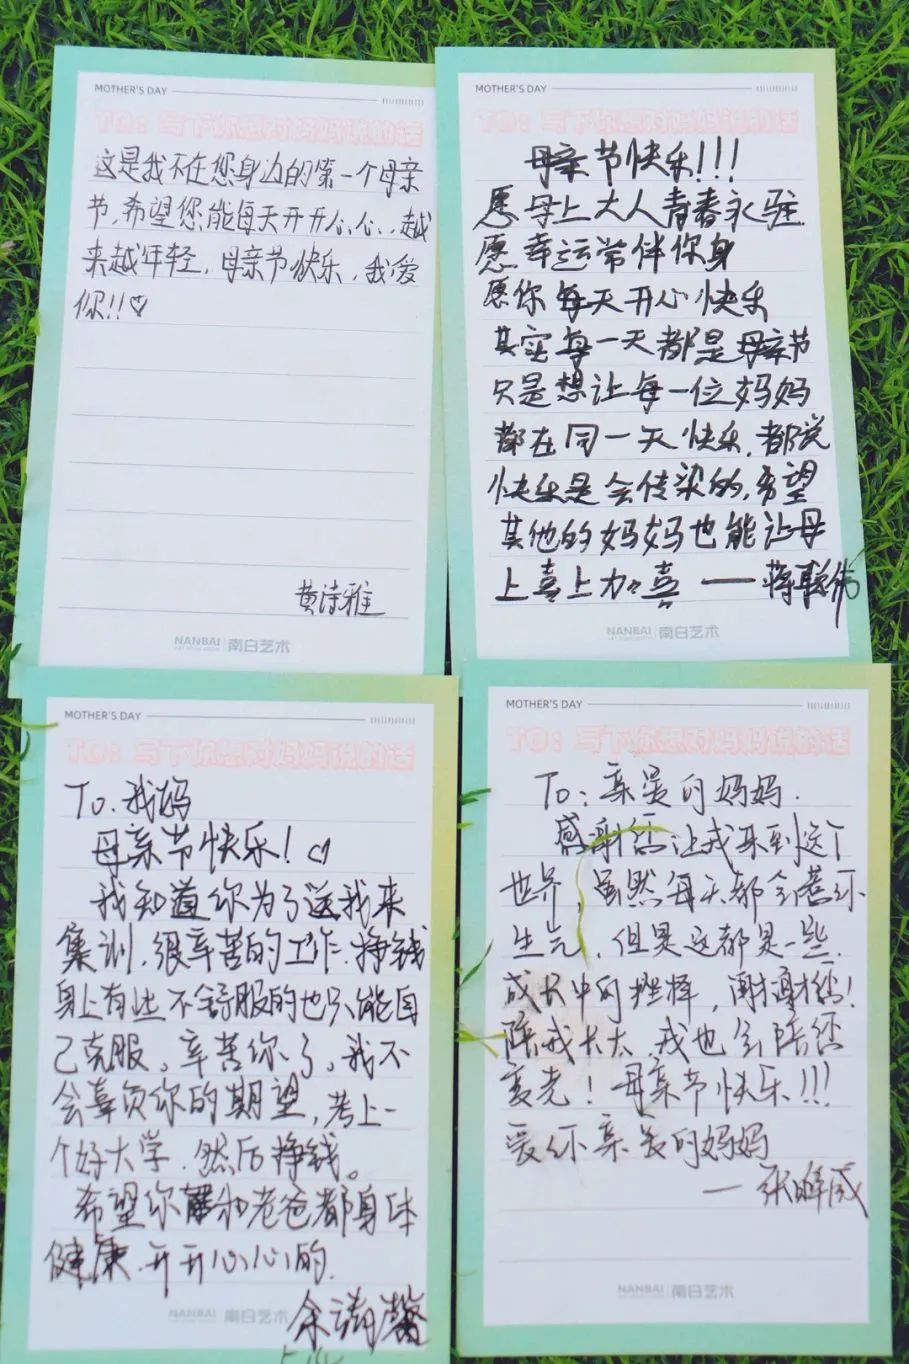 MOTHER'S DAY
TO：写下你想对妈妈说的话
这是我不在您身边的第一个母亲
节,希望您能每天开开心心,越
来越年轻,母亲节快乐,我爱
你!!♡
黄诗雅
NANBAI 南白艺术
MOTHER'S DAY
TO：写下你想对妈妈说的话
母亲节快乐!!!
愿母上大人青春永驻.
愿幸运常伴你身
愿你每天开心快乐
其实每一天都是母亲节
只是想让每一位妈妈
都在同一天快乐.都说
快乐是会传染的,希望
其他的妈妈也能让母
上喜上加喜 ——蒋
NANBAI 南白艺术
MOTHER'S DAY
TO：写下你想对妈妈说的话
To.我妈
母亲节快乐!♡
我知道你为了送我来
集训,很辛苦的工作.挣钱
身上有些不舒服的也只能自
己克服,辛苦你了,我不
会辜负你的期望,考上一
个好大学.然后挣钱。
希望你和老爸都身体
健康.开开心心的.
余
NANBAI 南白艺术
MOTHER'S DAY
TO：写下你想对妈妈说的话
To:亲爱的妈妈.
感谢您让我来到这个
世界 虽然每天都会惹你
生气,但是这都是一些
成长中的 ,谢谢您!
陪我长大,我也会陪您
变老!母亲节快乐!!!
爱你亲爱的妈妈
—张
NANBAI 南白艺术